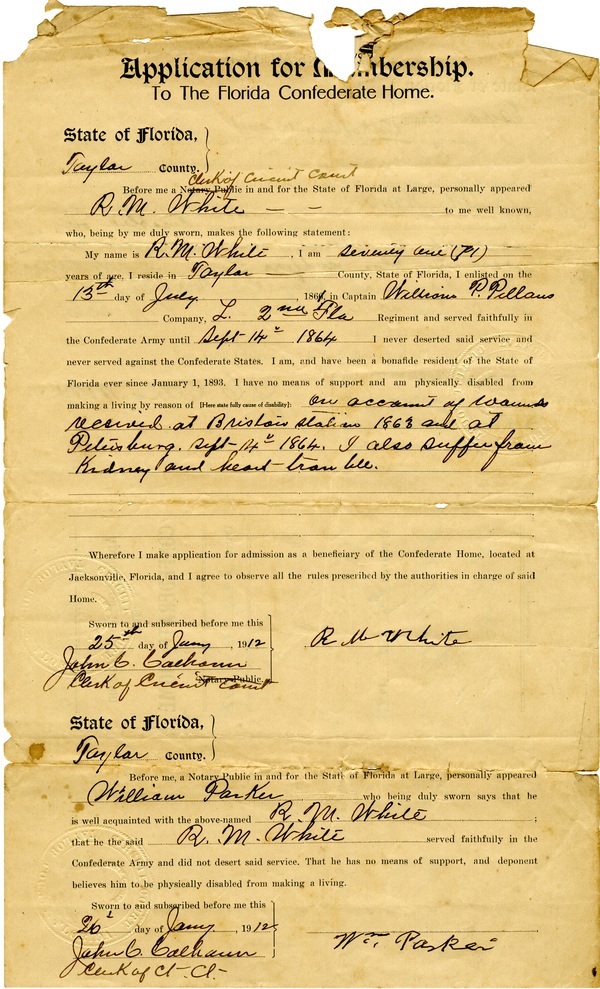 Application for Membership.
To The Florida Confederate Home.
State of Florida,
Taylor County.
Clerk of Circuit Court
Before me a Notary Public in and for the State of Florida at Large, personally appeared
R. M. White to me well known,
who, being by me duly sworn, makes the following statement:
My name is R. M. White, I am seventy one (71)
years of age, I reside in Taylor County, State of Florida, I enlisted on the
13th day of July, 186 in Captain William P. Pillans
Company, L. 2nd Fla Regiment and served faithfully in
the Confederate Army until Sept 14th 1864 I never deserted said service and
never served against the Confederate States. I am, and have been a bonafide resident of the State of
Florida ever since January 1, 1893. I have no means of support and am physically disabled from
making a living by reason of [Here state fully cause of disability]: on account of wounds
received at Bristow station 1863 and at
Petersburg. Sept 14th 1864. I also suffer from
Kidney and heart trouble.
Wherefore I make application for admission as a beneficiary of the Confederate Home, located at
Jacksonville, Florida, and I agree to observe all the rules prescribed by the authorities in charge of said
Home.
Sworn to and subscribed before me this
25th day of Jany, 1912
R M White
John C. Calhoun
Clerk of Circuit Court
Notary Public.
State of Florida,
Taylor County.
Before me, a Notary Public in and for the State of Florida at Large, personally appeared
William Parker who being duly sworn says that he
is well acquainted with the above-named R. M. White;
that he the said R. M. White served faithfully in the
Confederate Army and did not desert said service. That he has no means of support, and deponent
believes him to be physically disabled from making a living.
Sworn to and subscribed before me this
26 day of Jany, 1912
Wm. Parker
John C. Calhoun
Clerk of Ct. Ct.